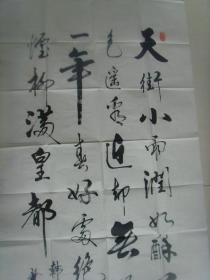 天街小雨润如酥
色遥看近却无
一年春好处绝
烟柳满皇都
韩